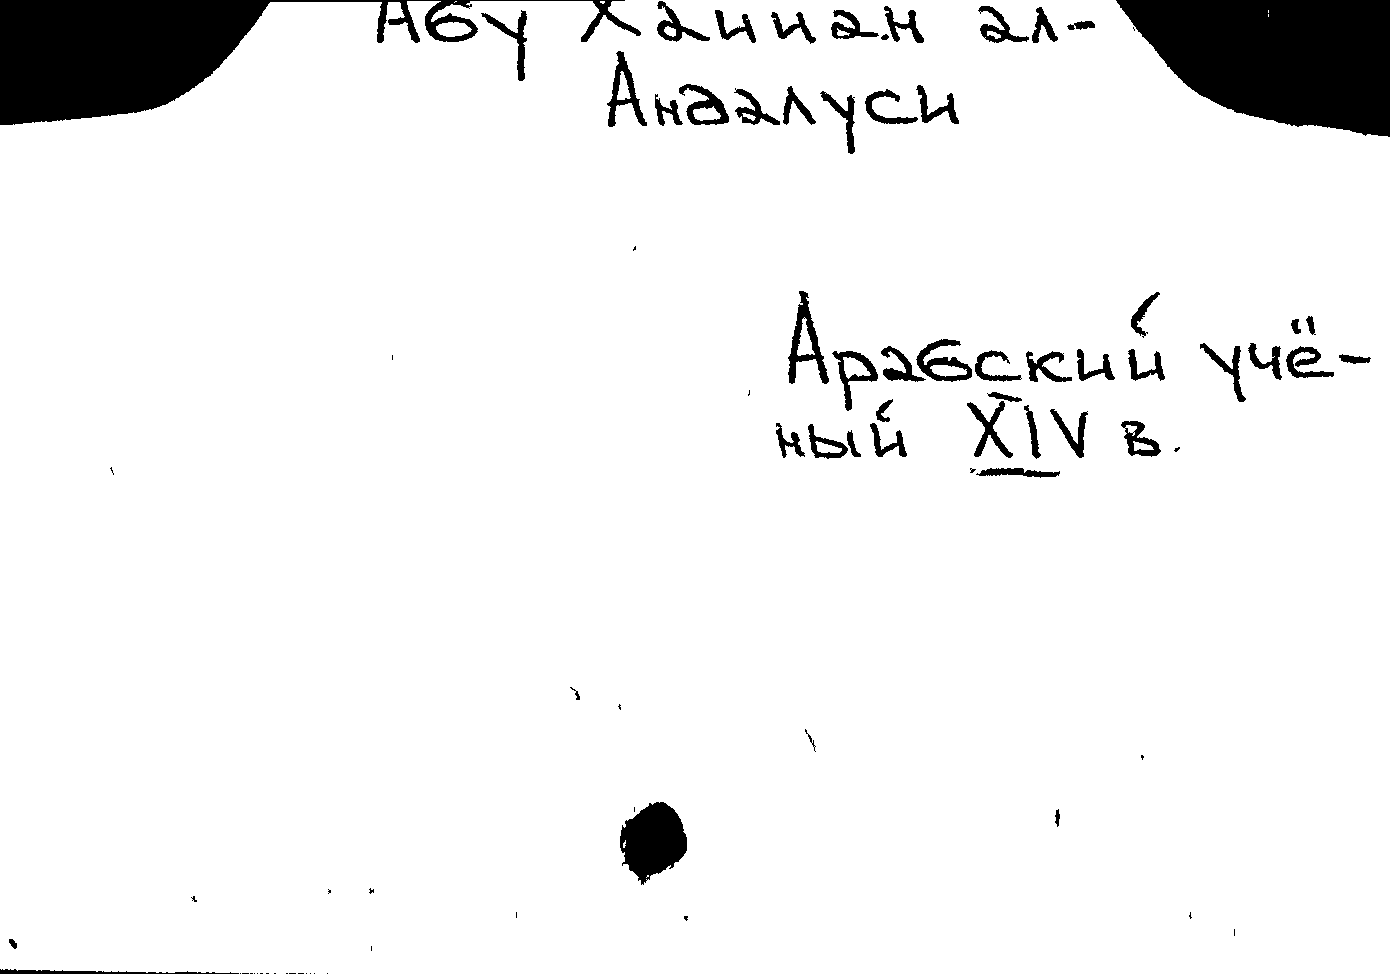 Абу Хаииан ал-
Андалуси
Арабский учё-
ный XIV в.